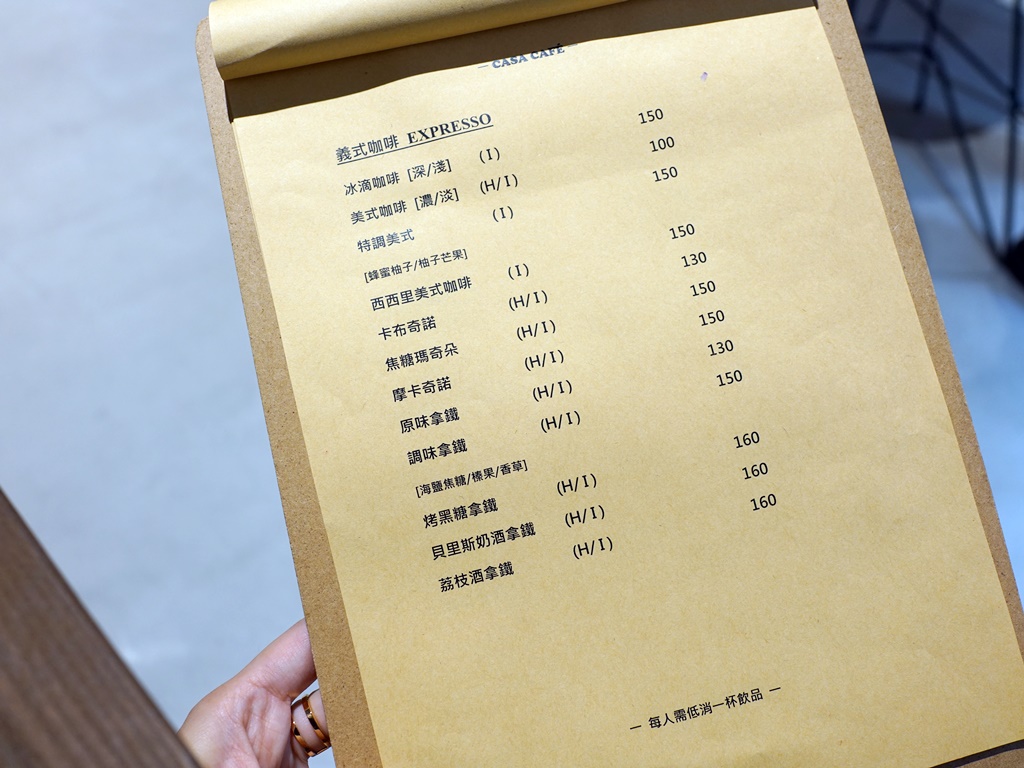 — CASA CAFÉ —
義式咖啡 EXPRESSO
冰滴咖啡 [深/淺] (I) 150
美式咖啡 [濃/淡] (H/I) 100
特調美式 (I) 150
[蜂蜜柚子/柚子芒果]
西西里美式咖啡 (I) 150
卡布奇諾 (H/I) 130
焦糖瑪奇朵 (H/I) 150
摩卡奇諾 (H/I) 150
原味拿鐵 (H/I) 130
調味拿鐵 (H/I) 150
[海鹽焦糖/榛果/香草]
烤黑糖拿鐵 (H/I) 160
貝里斯奶酒拿鐵 (H/I) 160
荔枝酒拿鐵 (H/I) 160
— 每人需低消一杯飲品 —